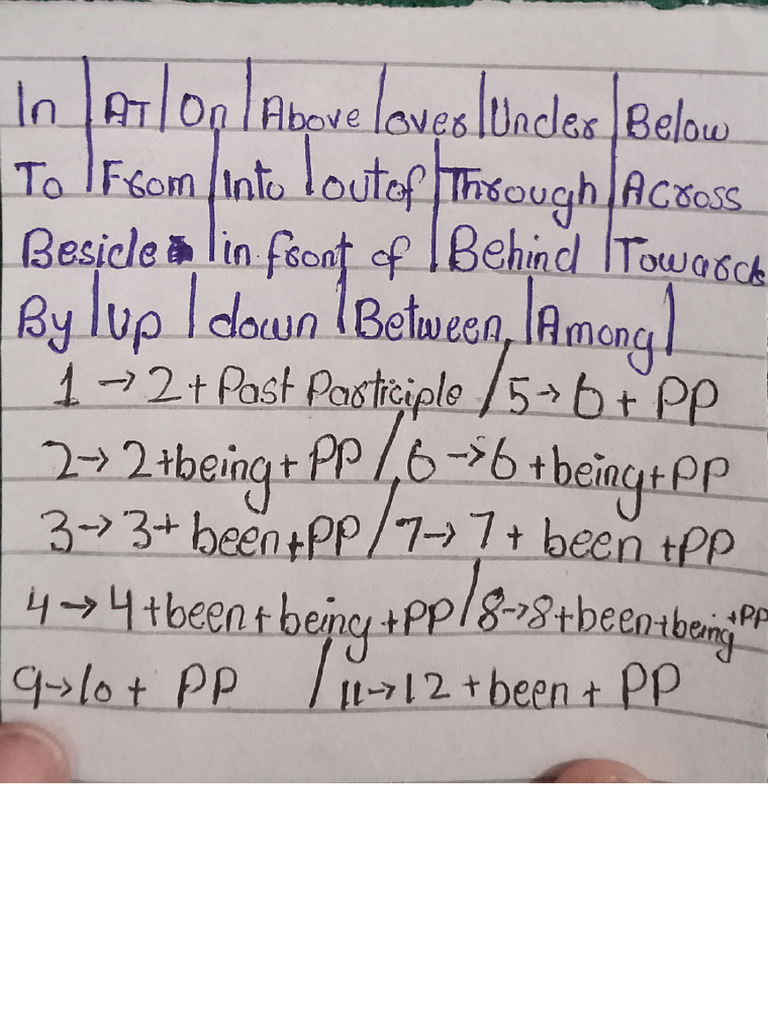 In | AT | On | Above | over | Under | Below
To | From | into | out of | Through | Across
Beside | in front of | Behind | Towards
By | up | down | Between | Among |
1 → 2 + Past Participle / 5 → 6 + PP
2 → 2 + being + PP / 6 → 6 + being + PP
3 → 3 + been + PP / 7 → 7 + been + PP
4 → 4 + been + being + PP / 8 → 8 + been + being + PP
9 → 10 + PP / 11 → 12 + been + PP